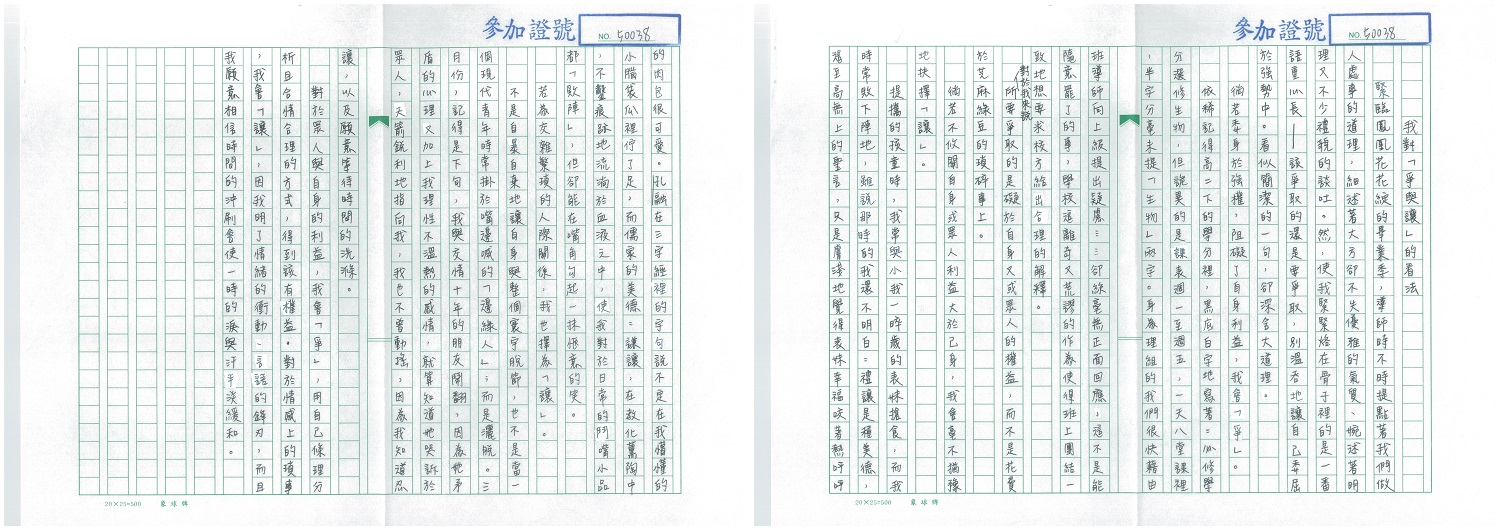 參加證號
NO. 50038
我對「爭與讓」的看法
緊臨鳳凰花花綻的畢業季，導師時不時提點著我們做
人處事的道理，細述著大方卻不失優雅的氣質、婉述著明
理又不少禮貌的談吐。然，使我緊緊烙在骨子裡的是一番
語重心長──該爭取的還是要爭取，別溫吞地讓自己委屈
於強勢中。看似簡潔的一句，卻深含大道理。
倘若委身於強權，阻礙了自身利益，我會「爭」。
依稀記得高二下的學分裡，黑底白字地寫著：必修學
分選修生物，但詭異的是課表週一至週五，一天八堂課裡
，半字分毫未提「生物」兩字。身為理組的我們很快藉由
班導師向上級提出疑慮……卻絲毫無正面回應，這不是能
隨意罷了的事，學校這離奇又荒謬的作為使得班上團結一
致地想要求校方給出合理的解釋。
對於我來說
所要爭取的是礙於自身又或眾人的權益，而不是花費
於芝麻綠豆的瑣碎事上。
倘若不攸關自身或眾人利益大於己身，我會毫不猶豫
地抉擇「讓」
提攜的孩童時，我常與小我一晬歲的表妹搶食，而我
時常敗下陣地，雖說那時的我還不明白：禮讓是種美德，
是至高無上的聖言，只是膚淺地覺得表妹幸福咬著熱呼呼
參加證號
NO. 50038
的肉包很可愛。孔融在三字經裡的字句說不定在我懵懂的
小腦袋瓜裡佇了足，而儒家的美德：謙讓，在教化薰陶中
，不鑿痕跡地流淌於血液之中，使我對於日常的鬥嘴小品
都「敗陣」，但卻能在嘴角勾起一抹恨意的笑。
若為交雜繁瑣的人際關係，我也擇為「讓」。
不是自暴自棄地讓自身與整個寰宇脫節，也不是當一
個現代青年時常掛於嘴邊喊的「邊緣人」；而是灑脫。三
月份，記得是下旬，我與交情十年的朋友鬧翻，因為他矛
盾的心理又加上我理性不溫熱的感情，就算知道她哭訴於
眾人，天箭銳利地指向我，我也不曾動搖，因為我知道忍
讓，以及願意等待時間的洗滌。
對於眾人與自身的利益，我會「爭」，用自己條理分
析且合情合理的方式，得到該有權益。對於情感上的瑣事
，我會「讓」，因我明了情緒的衝動、言語的鋒刃，而且
我願意相信時間的沖刷會使一時的淚與汗平淡緩和。
20×25=500
象球牌
20×25=500
象球牌